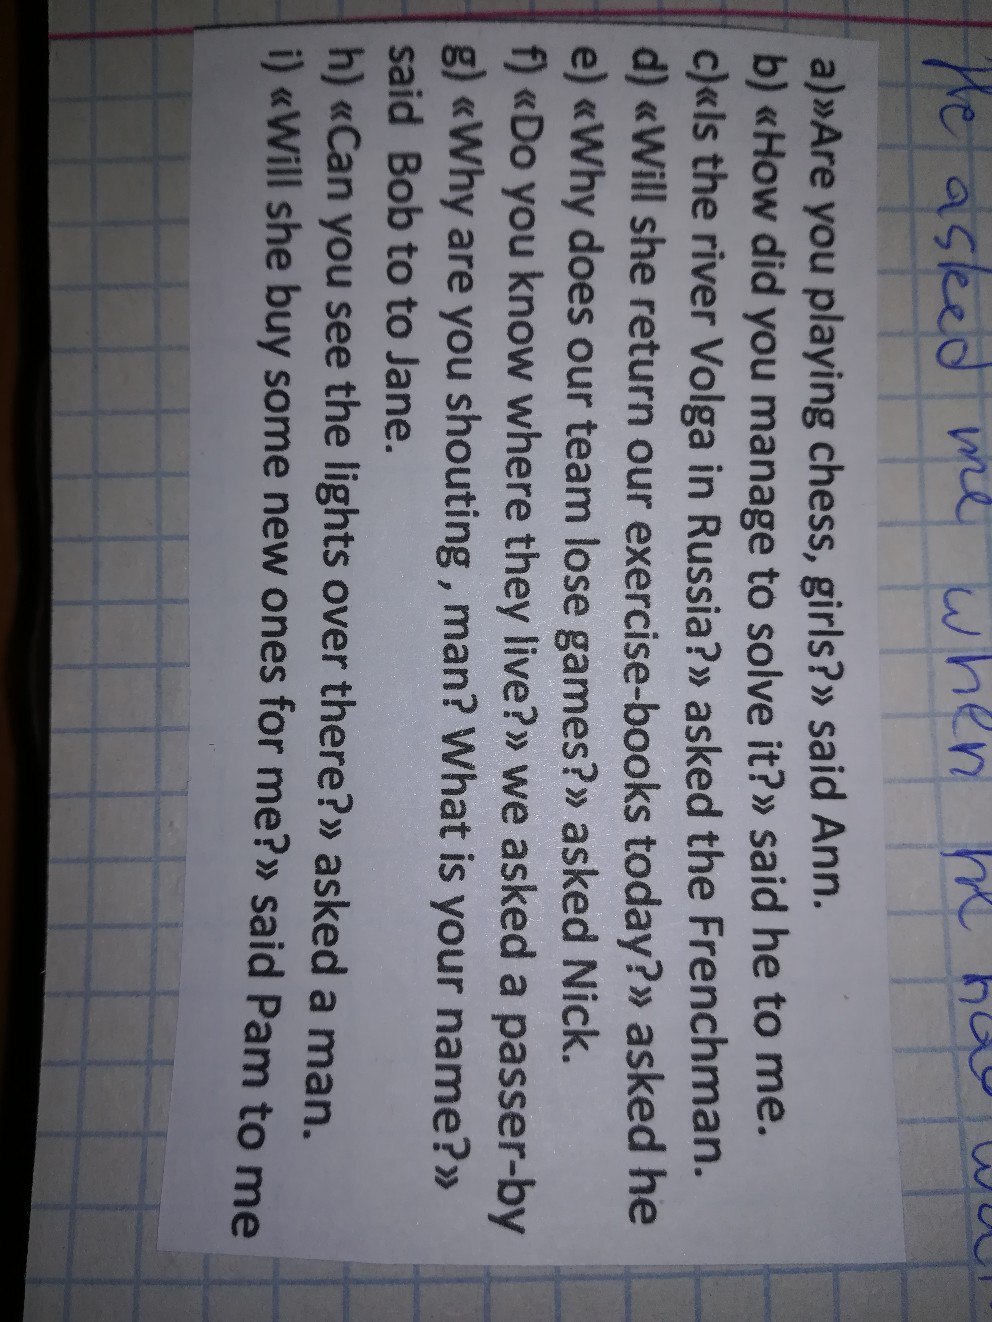 He asked me when he had
a)»Are you playing chess, girls?» said Ann.
b) «How did you manage to solve it?» said he to me.
c)«Is the river Volga in Russia?» asked the Frenchman.
d) «Will she return our exercise-books today?» asked he
e) «Why does our team lose games?» asked Nick.
f) «Do you know where they live?» we asked a passer-by
g) «Why are you shouting , man? What is your name?»
said Bob to to Jane.
h) «Can you see the lights over there?» asked a man.
i) «Will she buy some new ones for me?» said Pam to me